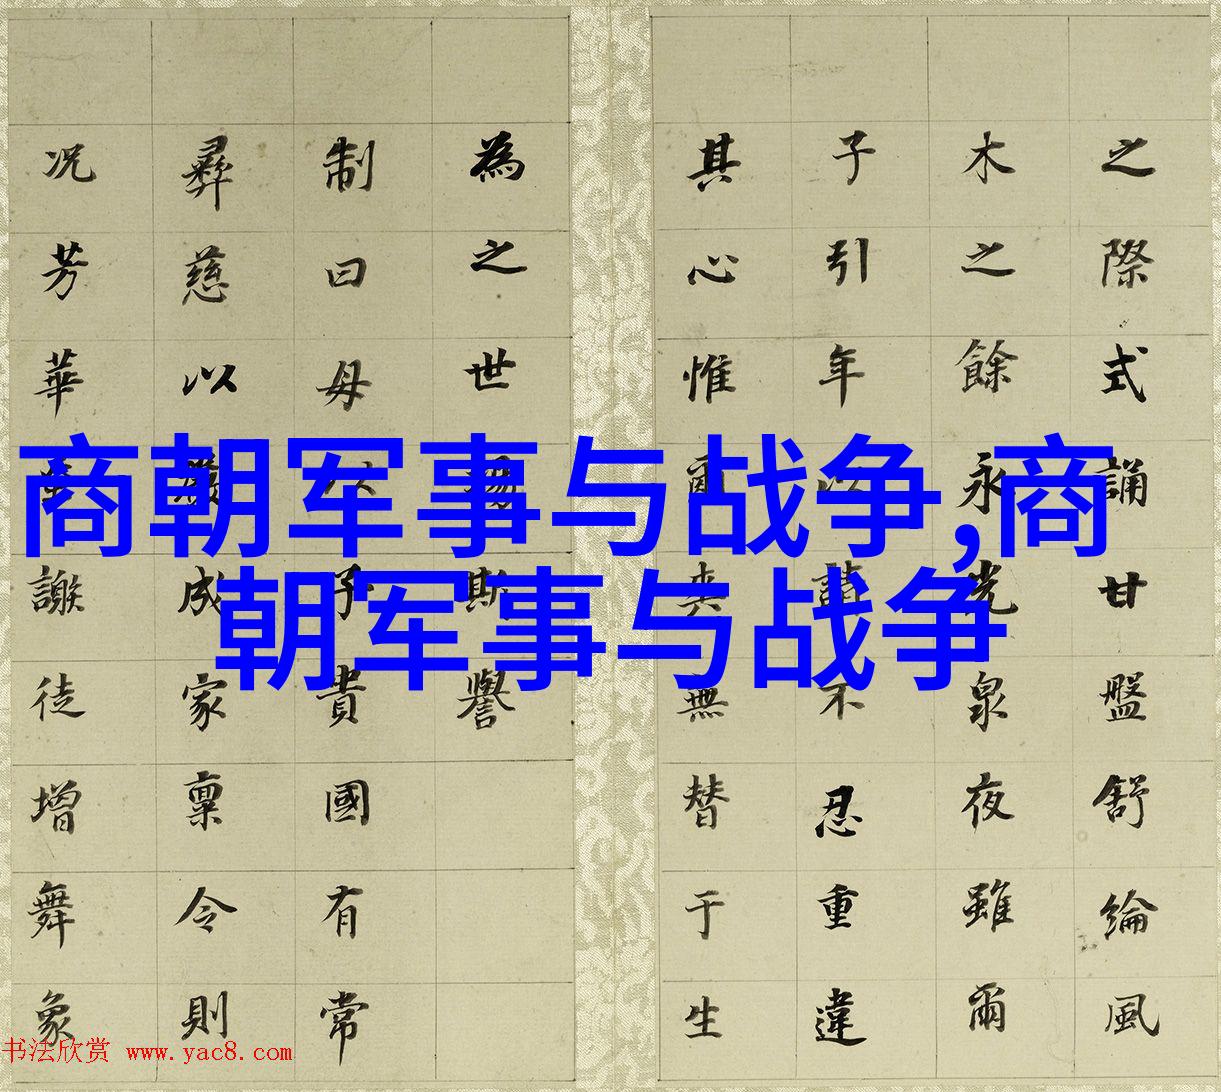 商朝军事与战争,商
朝军事与战争
之際式誦甘盤舒綸風
木之餘永光泉夜雖爾
子引年以請不忍重違
其心惟爾奕無替于生
為之世斯譽
制曰母以子貴國有常
彝慈以嚴成家稟令則
况芳華謝徒增舞象
书法欣赏 www.yac8.com